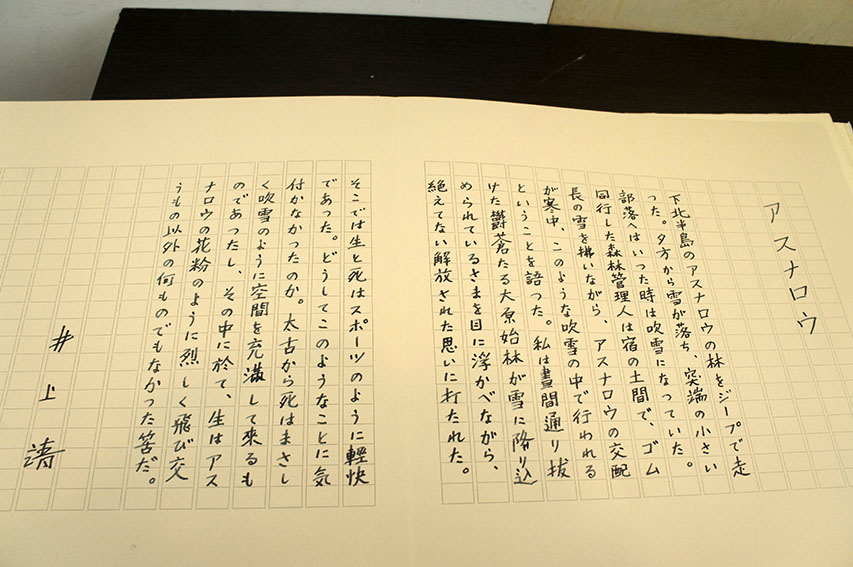 アスナロウ
下北半島のアスナロウの林をジープで走
った。夕方から雪が落ち、突端の小さい
部落へはいった時は吹雪になっていた。
同行した森林管理人は宿の土間で、ゴム
長の雪を拂いながら、アスナロウの交配
が寒中、このような吹雪の中で行われる
ということを語った。私は晝間通り抜
けた欝蒼たる大原始林が雪に降り込
められているさまを目に浮かべながら、
絶えてない解放された思いに打たれた。
そこでは生と死はスポーツのように輕快
であった。どうしてこのようなことに気
付かなかったのか。太古から死はまさし
く吹雪のように空間を充満して来るも
のであったし、その中に於て、生はアス
ナロウの花粉のように烈しく飛び交
うもの以外の何ものでもなかった筈だ。
井上靖